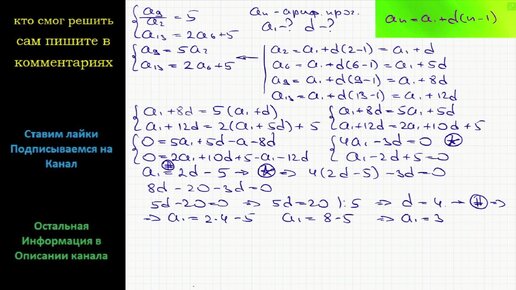 кто смог решить
сам пишите в
комментариях
Ставим лайки
Подписываемся на
Канал
Остальная
Информация в
Описании канала
{ a₉/a₂ = 5
a₁₃ = 2a₆+5
aₙ - ариф. прог.
a₁-? d-?
aₙ = a₁+d(n-1)
{ a₉ = 5a₂
a₁₃ = 2a₆+5 ←
a₂ = a₁+d(2-1) = a₁+d
a₆ = a₁+d(6-1) = a₁+5d
a₉ = a₁+d(9-1) = a₁+8d
a₁₃ = a₁+d(13-1) = a₁+12d
{ a₁+8d = 5(a₁+d)
a₁+12d = 2(a₁+5d)+5
{ a₁+8d = 5a₁+5d
a₁+12d = 2a₁+10d+5
{ 0 = 5a₁+5d-a-8d
0 = 2a₁+10d+5-a₁-12d
{ 4a₁-3d=0 ★
a₁-2d+5=0
# a₁ = 2d-5 → ★ ⇒ 4(2d-5)-3d=0
8d-20-3d=0
5d-20=0 ⇒ 5d=20 ):5 ⇒ d=4 → # ⇒
⇒ a₁=2·4-5 a₁=8-5 ⇒ a₁=3